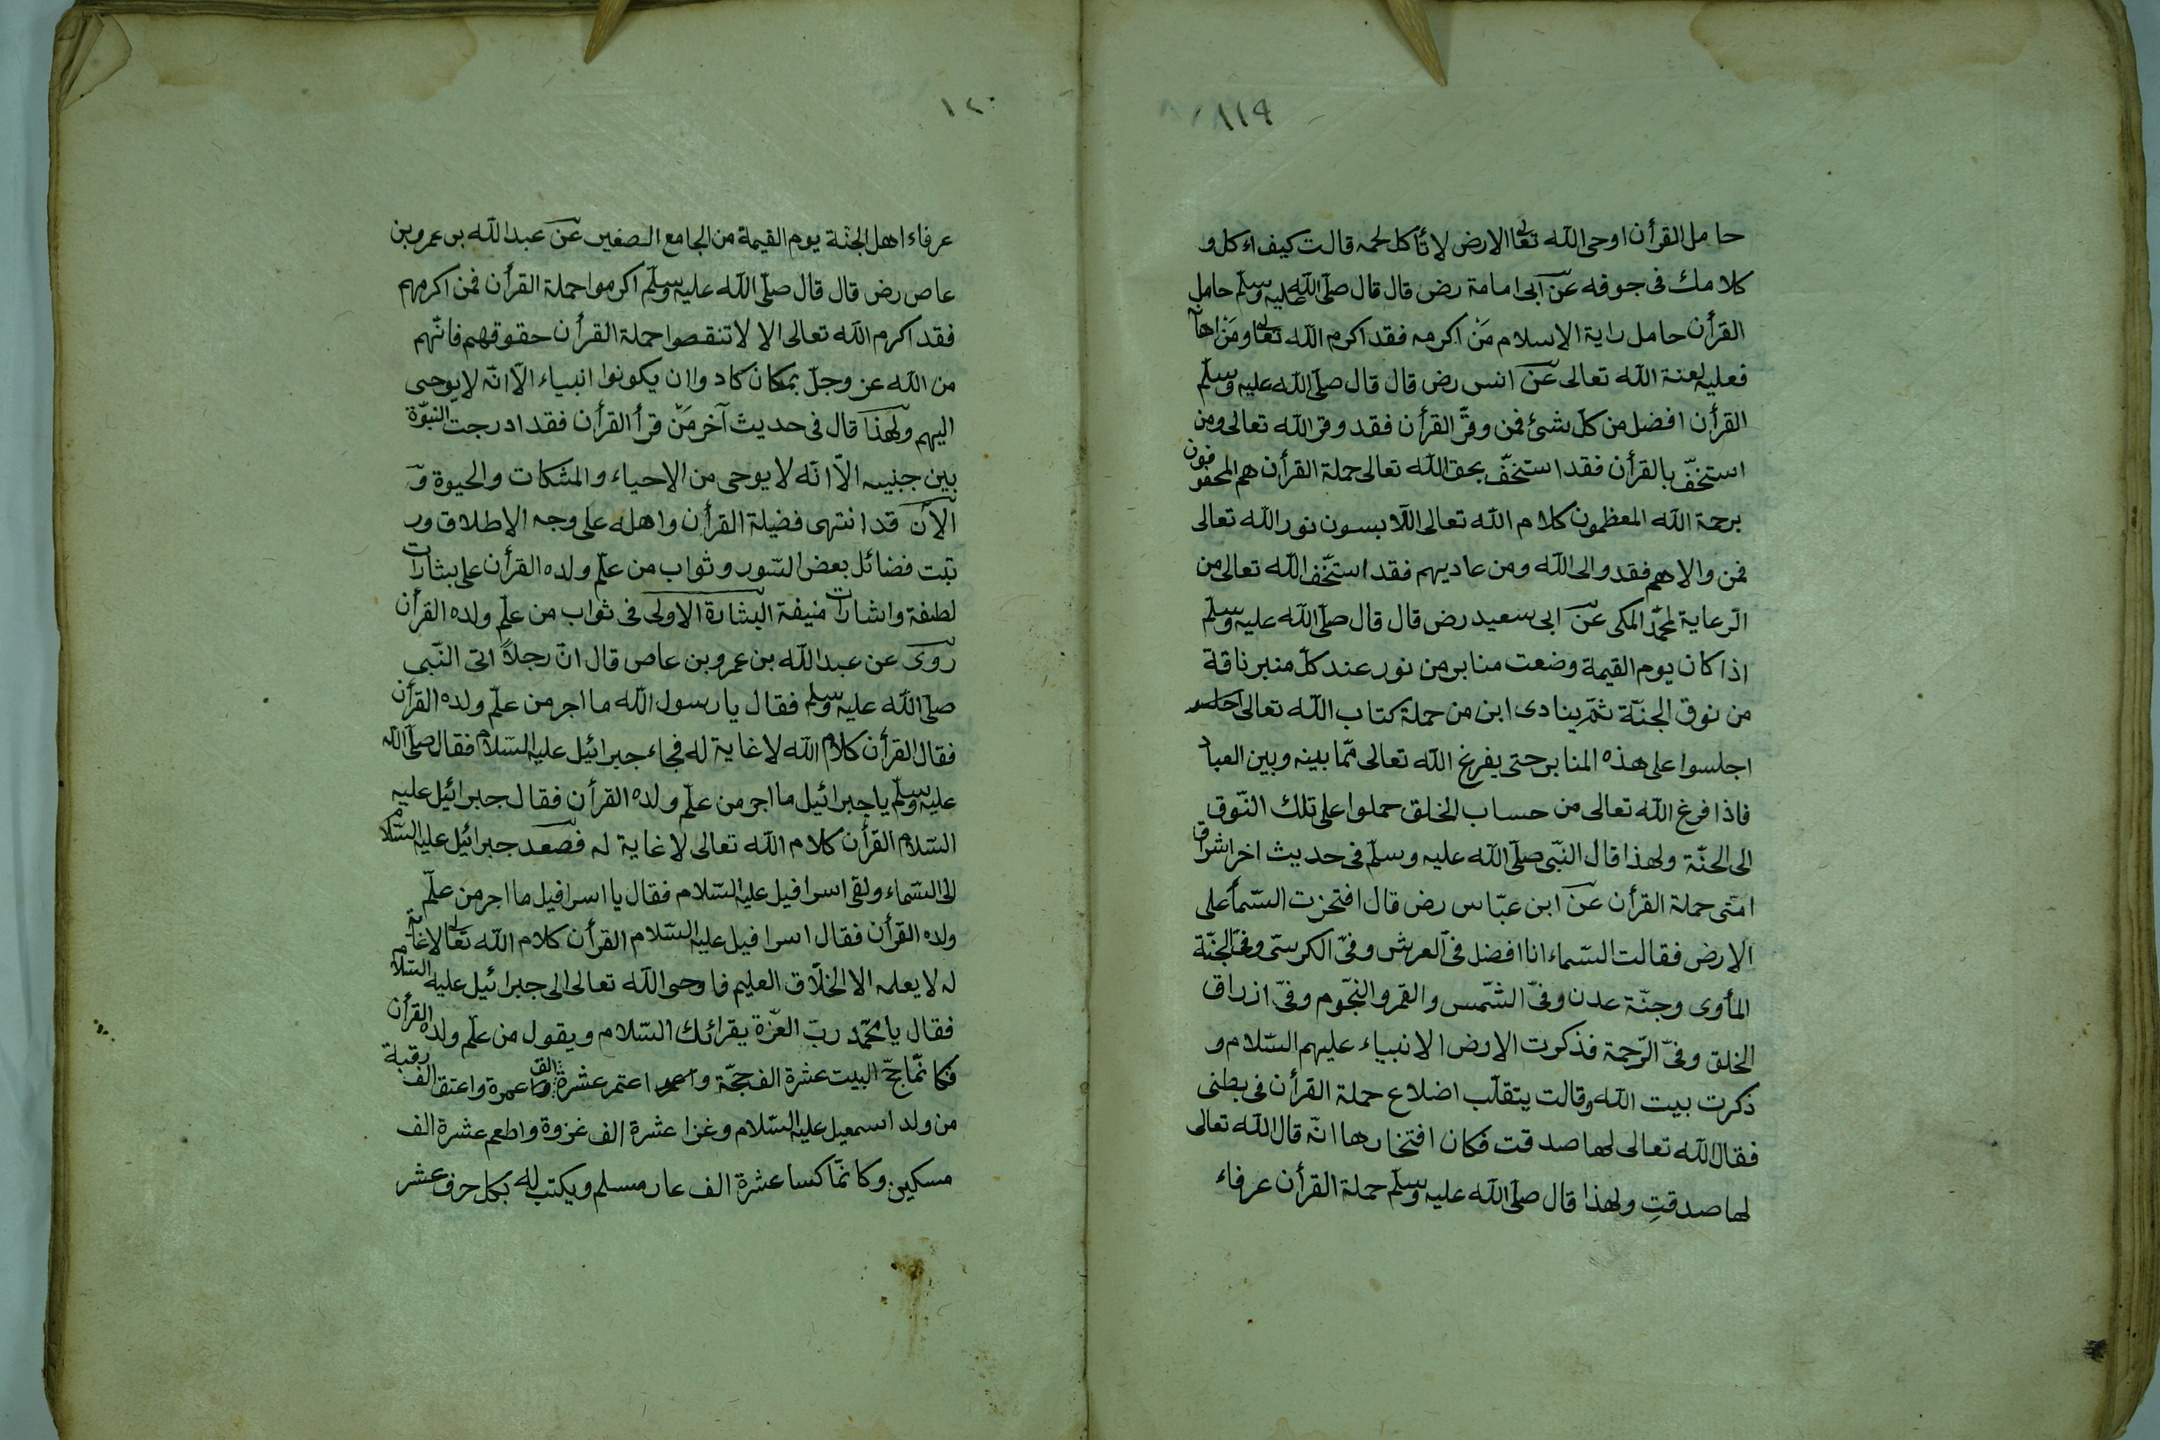 ١١٩
حامل القرأن اوحى الله تعالى الارض لا تأكل لحمه قالت كيف اءكل و
كلامك فى جوفه عن ابى امامة رض قال قال صلّى الله عليه وسلّم حامل
القرأن حامل راية الاسلام مَنْ اكرمه فقد اكرم الله تعالى ومَنْ اهانه
فعليه لعنة الله تعالى عن انس رض قال قال صلّى الله عليه وسلّم
القرأن افضل من كلّ شئ فمن وقّر القرأن فقد وقر الله تعالى ومن
استخفّ بالقرأن فقد استخفّ بحق الله تعالى حملة القرأن هم المحفوفون
برحمة الله المعظمون كلام الله تعالى اللابسون نور الله تعالى
فمن والاهم فقد والى الله ومن عاديهم فقد استخف الله تعالى من
الرّعاية لمحمّد المكى عن ابى سعيد رض قال قال صلّى الله عليه وسلّم
اذا كان يوم القيمة وضعت منابر من نور عند كلّ منبر ناقة
من نوق الجنّة ثمّ ينادى اين من حملة كتاب الله تعالى
اجلسوا على هذه المنابر حتى يفرغ الله تعالى ممّا بينه وبين العباد
فاذا فرغ الله تعالى من حساب الخلق حملوا على تلك النّوق
الى الجنّة ولهذا قال النّبى صلّى الله عليه وسلّم فى حديث اخر اشراف
امّتى حملة القرأن عن ابن عبّاس رض قال افتخرت السّماء على
الارض فقالت السّماء انا افضل فىّ العرش وفىّ الكرسّى وفىّ الجنّة
المأوى وجنّة عدن وفىّ الشّمس والقمر والنّجوم وفىّ ازراق
الخلق وفىّ الرّحمة فذكرت الارض الانبياء عليهم السّلام و
ذكرت بيت الله وقالت يتقلّب اضلاع حملة القرأن فى بطنى
فقال الله تعالى لها صدقت فكان افتخارها انّه قال الله تعالى
لها صدقتِ ولهذا قال صلّى الله عليه وسلّم حملة القرأن عرفاء
١٢٠
عرفاء اهل الجنّة يوم القيمة من الجامع الصغير عن عبد الله بن عمرو بن
عاص رض قال قال صلّى الله عليه وسلّم اكرموا حملة القرأن فمن اكرمهم
فقد اكرم الله تعالى الا لا تنقصوا حملة القرأن حقوقهم فانّهم
من الله عز وجلّ بمكان كادوا ان يكونوا انبياء الّا انّه لا يوحى
اليهم ولهذا قال فى حديث آخر مَنْ قرأ القرأن فقد ادرجت النبوّة
بين جنبيه الّا انّه لا يوحى من الاحياء والمشكات والحيوة و
الأن قد انتهى فضيلة القرأن واهله على وجه الاطلاق ور
تبت فضائل بعض السّور وثواب من علّم ولده القرأن على بشارات
لطيفة واشارات منيفة البشارة الاولى فى ثواب من علّم ولده القرأن
روى عن عبد الله بن عمرو بن عاص قال انّ رجلاً اتى النّبى
صلّى الله عليه وسلّم فقال يا رسول الله ما اجر من علّم ولده القرأن
فقال القرأن كلام الله لا غاية له فجاء جبرائيل عليه السّلام فقال صلّى الله
عليه وسلّم يا جبرائيل ما اجر من علّم ولده القرأن فقال جبرائيل عليه
السّلام القرأن كلام الله تعالى لا غاية له فصعد جبرائيل عليه السّلام
الى السّماء ولقى اسرافيل عليه السّلام فقال يا اسرافيل ما اجر من علّم
ولده القرأن فقال اسرافيل عليه السّلام القرأن كلام الله تعالى لا غاية
له لا يعلمه الا الخلّاق العليم فاوحى الله تعالى الى جبرائيل عليه السّلام
فقال يا محمّد ربّ العزّة يقرائك السّلام ويقول من علّم ولده القرأن
فكانّما حجّ البيت عشرة الف حجّة اعتمر عشرة الف عمرة واعتق الف رقبة
من ولد اسمعيل عليه السّلام وغزا عشرة الف غزوة واطعم عشرة الف
مسكين وكانّما كسا عشرة الف عار مسلم ويكتب له بكل حرف عشر